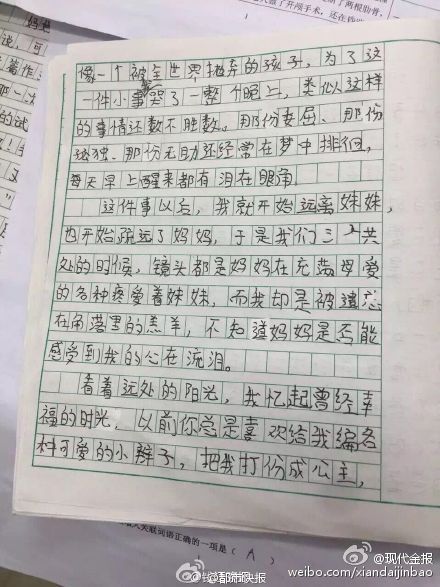 了两根肋骨,
像一个被全世界抛弃的孩子,为了这
一件小事哭了一整个晚上,类似这样
的事情还数不胜数。那份委屈、那份
孤独、那份无助还经常在梦中排徊,
每天早上醒来都有泪在眼角。
这件事以后,我就开始远离妹妹,
也开始疏远了妈妈,于是我们三个共
处的时候,镜头都是妈妈在充满母爱
的各种疼爱着妹妹,而我却是被遗忘
在角落里的羔羊,不知道妈妈是否能
感受到我的心在流泪。
看着远处的阳光,我忆起曾经幸
福的时光,以前你总是喜欢给我编各
种可爱的小辫子,把我打份成公主,
关联词语正确的一项是(A)
@都市快报
@现代金报
weibo.com/xiandaijinbao